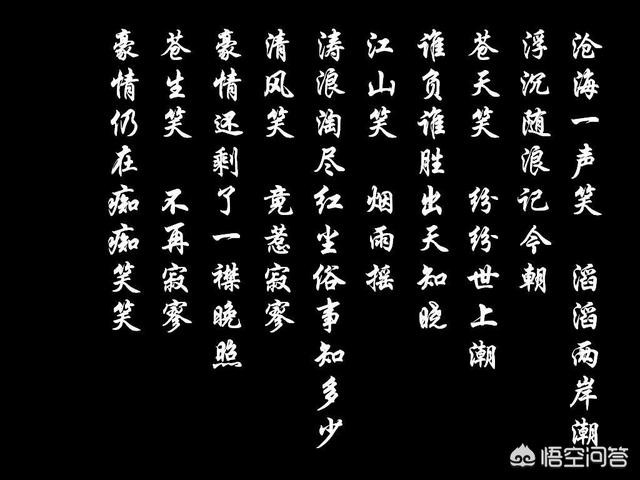 沧海一声笑 滔滔两岸潮
浮沉随浪记今朝
苍天笑 纷纷世上潮
谁负谁胜出天知晓
江山笑 烟雨摇
涛浪淘尽红尘俗事知多少
清风笑 竟惹寂寥
豪情还剩了一襟晚照
苍生笑 不再寂寥
豪情仍在痴痴笑笑
悟空问答